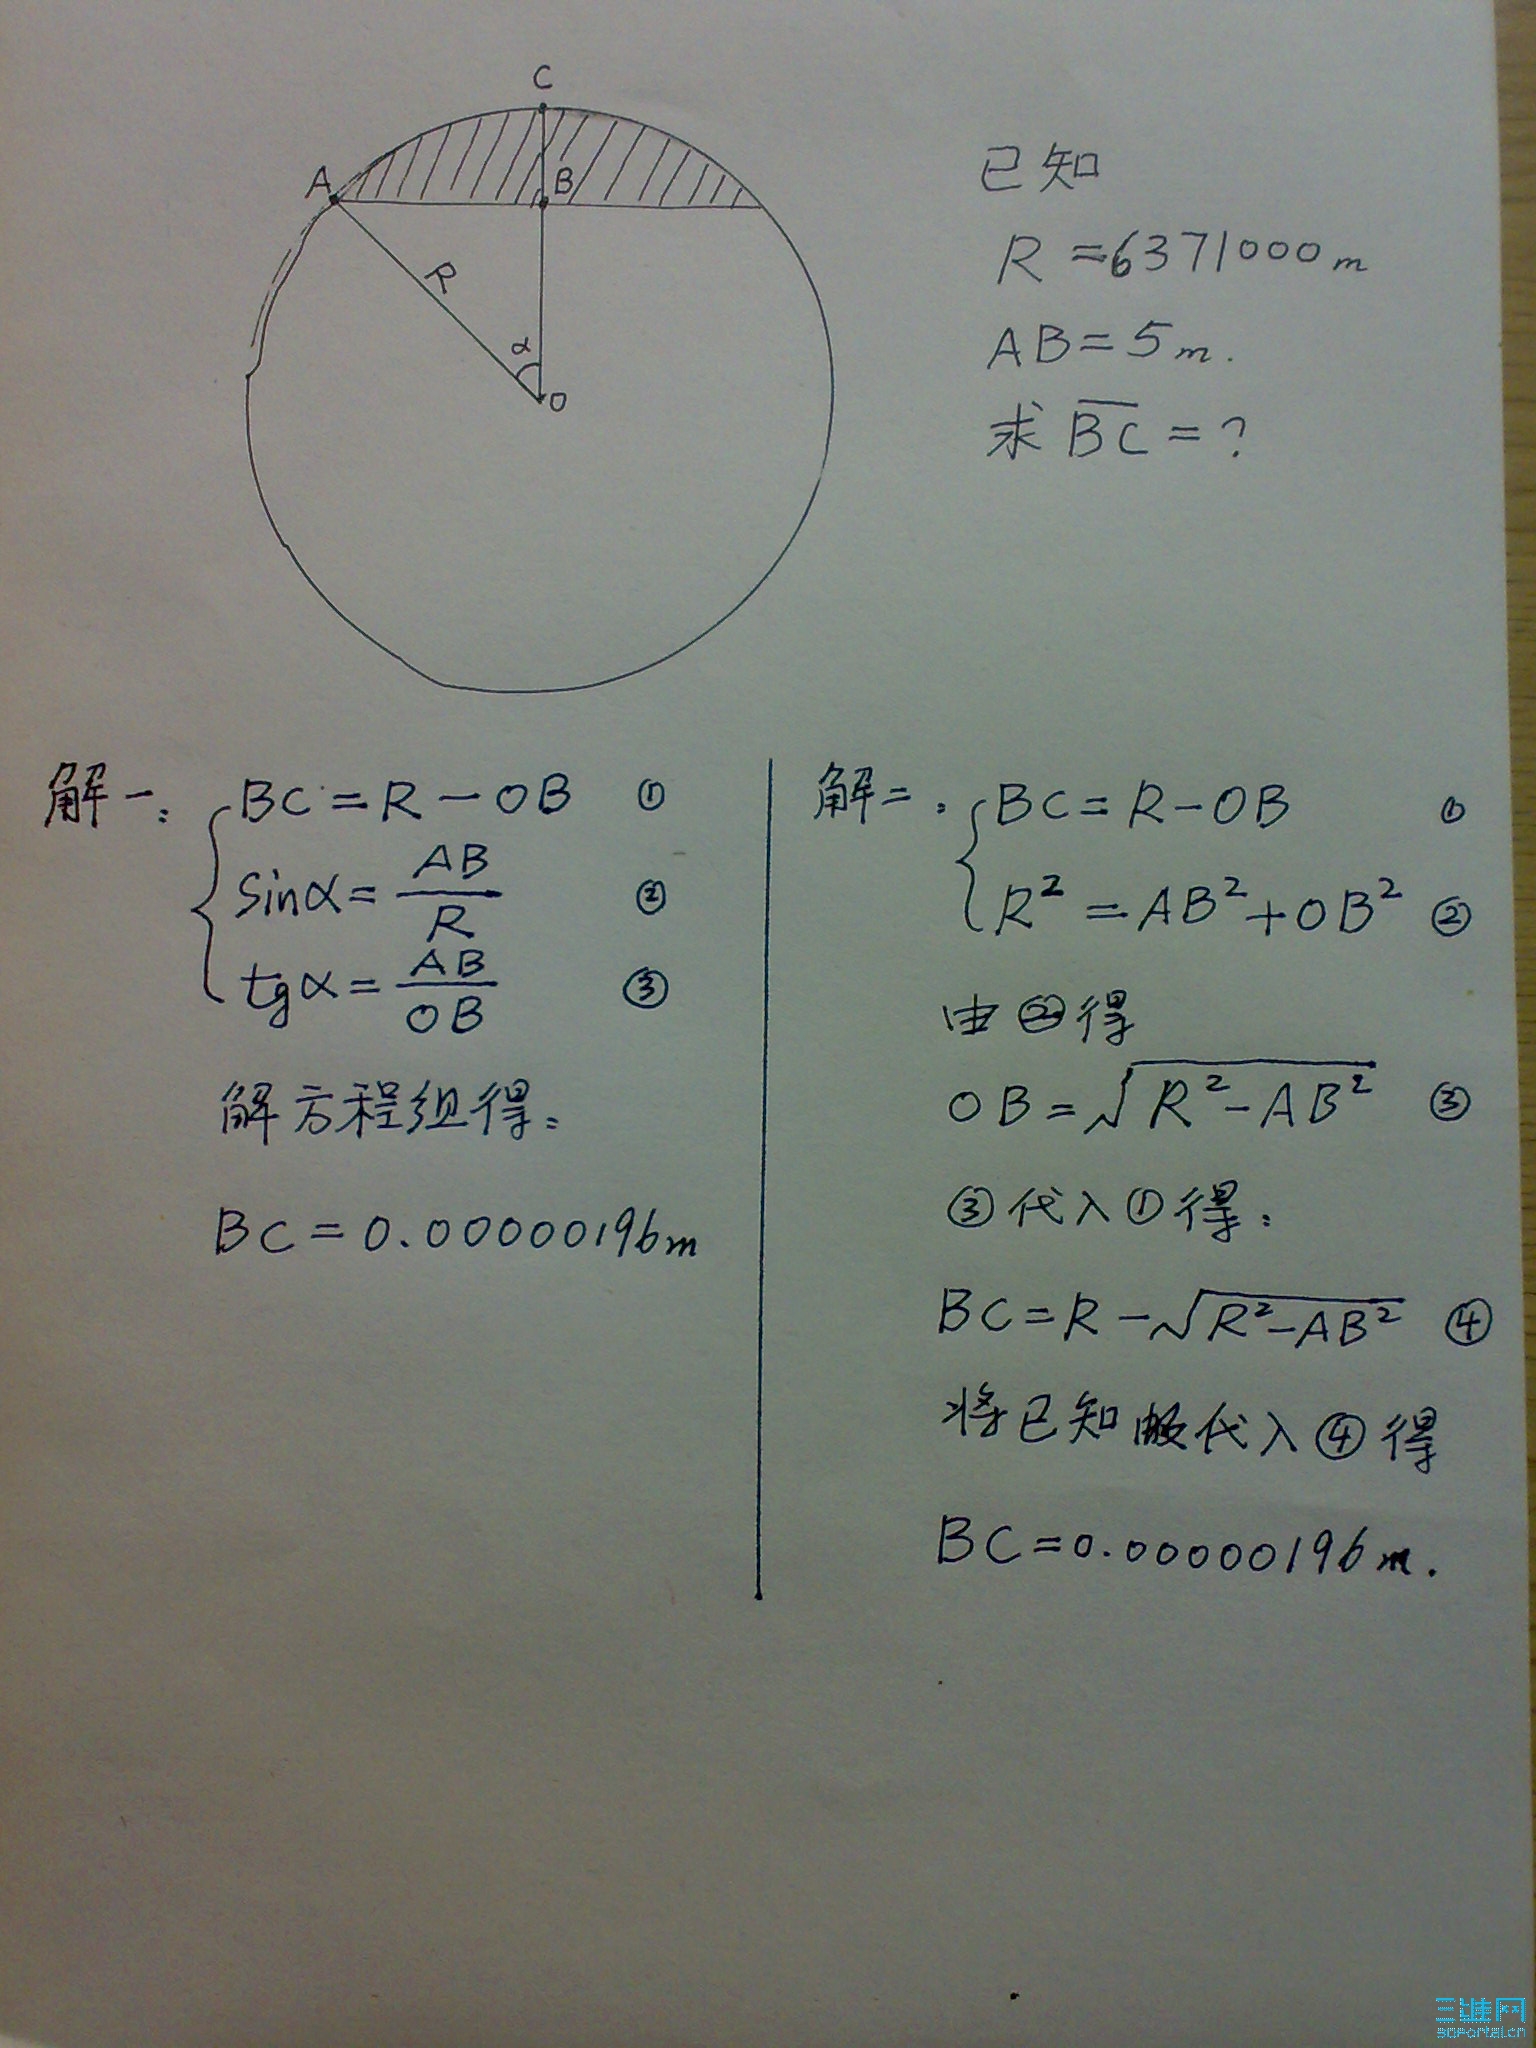 C
A
B
R
α
O
已知
R=6371000m
AB=5m.
求BC=?
解一:
BC=R-OB ①
sinα=AB/R ②
tgα=AB/OB ③
解方程组得:
BC=0.00000196m
解二:
BC=R-OB ①
R²=AB²+OB² ②
由②得
OB=√R²-AB² ③
③代入①得:
BC=R-√R²-AB² ④
将已知 代入④得
BC=0.00000196m.
三维网
3DPortal.cn